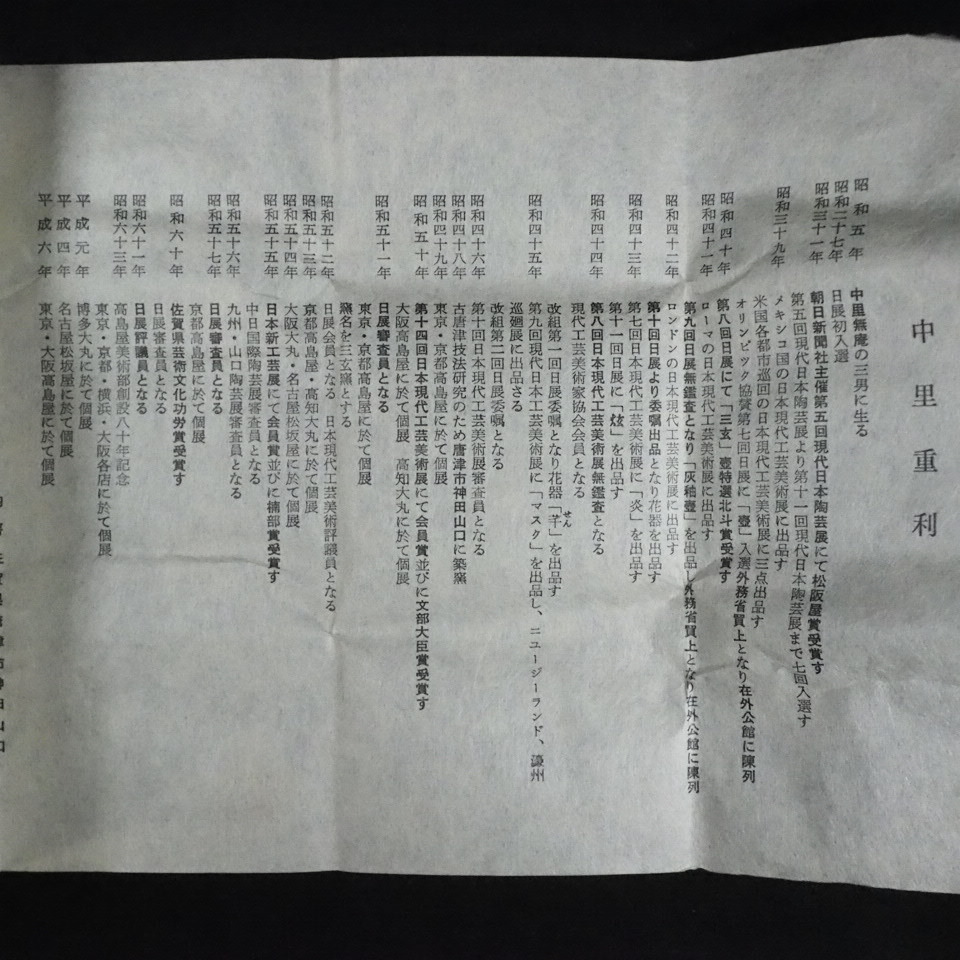 中里重利
昭和五年 中里無庵の三男に生る
昭和二十七年 日展初入選
昭和三十一年 朝日新聞社主催第五回現代日本陶芸展にて松阪屋賞受賞す
第五回現代日本陶芸展より第十一回現代日本陶芸展まで七回入選す
昭和三十九年 メキシコ国の日本現代工芸美術展に出品す
米国各都市巡回の日本現代工芸美術展に三点出品す
オリンピック協賛第七回日展に「壺」入選外務省買上となり在外公館に陳列
昭和四十年 第八回日展にて「三玄」壺特選北斗賞受賞す
昭和四十一年 ローマの日本現代工芸美術展に出品す
第九回日展無鑑査となり「灰釉壺」を出品し外務省買上となり在外公館に陳列
昭和四十二年 ロンドンの日本現代工芸美術展に出品す
第十回日展より委嘱出品となり花器を出品す
昭和四十三年 第七回日本現代工芸美術展に「炎」を出品す
第十一回日展に「炫」を出品す
昭和四十四年 第八回日本現代工芸美術展無鑑査となる
現代工芸美術家協会会員となる
改組第一回日展委嘱となり花器「芊」を出品す
せん
昭和四十五年 第九回現代日本工芸美術展に「マスク」を出品し、ニュージーランド、濠州
巡廻展に出品さる
改組第二回日展委嘱となる
昭和四十六年 第十回日本現代工芸美術展審査員となる
昭和四十八年 古唐津技法研究のため唐津市神田山口に築窯
昭和四十九年 東京・京都高島屋に於て個展
昭和五十年 第十四回日本現代工芸美術展にて会員賞並びに文部大臣賞受賞す
大阪高島屋に於て個展 高知大丸に於て個展
昭和五十一年 日展審査員となる
東京・京都高島屋に於て個展
窯名を三玄窯とする
昭和五十二年 日展会員となる 日本現代工芸美術評議員となる
昭和五十三年 京都高島屋・高知大丸に於て個展
昭和五十四年 大阪大丸・名古屋松坂屋に於て個展
昭和五十五年 日本新工芸展にて会員賞並びに楠部賞受賞す
中日国際陶芸展審査員となる
昭和五十六年 九州・山口陶芸展審査員となる
昭和五十七年 日展審査員となる
京都高島屋に於て個展
昭和六十年 佐賀県芸術文化功労賞受賞す
日展審査員となる
昭和六十一年 日展評議員となる
昭和六十三年 高島屋美術部創設八十年記念
東京・京都・横浜・大阪各店に於て個展
平成元年 博多大丸に於て個展
平成四年 名古屋松坂屋に於て個展
平成六年 東京・大阪高島屋に於て個展